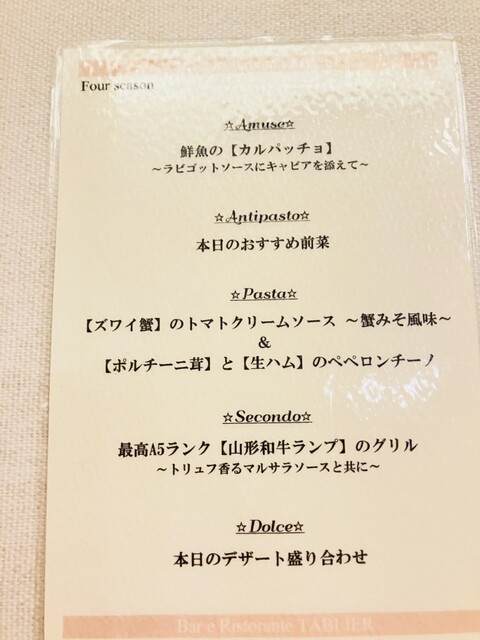 Four season
☆Amuse☆
鮮魚の【カルパッチョ】
～ラビゴットソースにキャビアを添えて～
☆Antipasto☆
本日のおすすめ前菜
☆Pasta☆
【ズワイ蟹】のトマトクリームソース ～蟹みそ風味～
&
【ポルチーニ茸】と【生ハム】のペペロンチーノ
☆Secondo☆
最高A5ランク【山形和牛ランプ】のグリル
～トリュフ香るマルサラソースと共に～
☆Dolce☆
本日のデザート盛り合わせ
Bar e Ristorante TABLIER